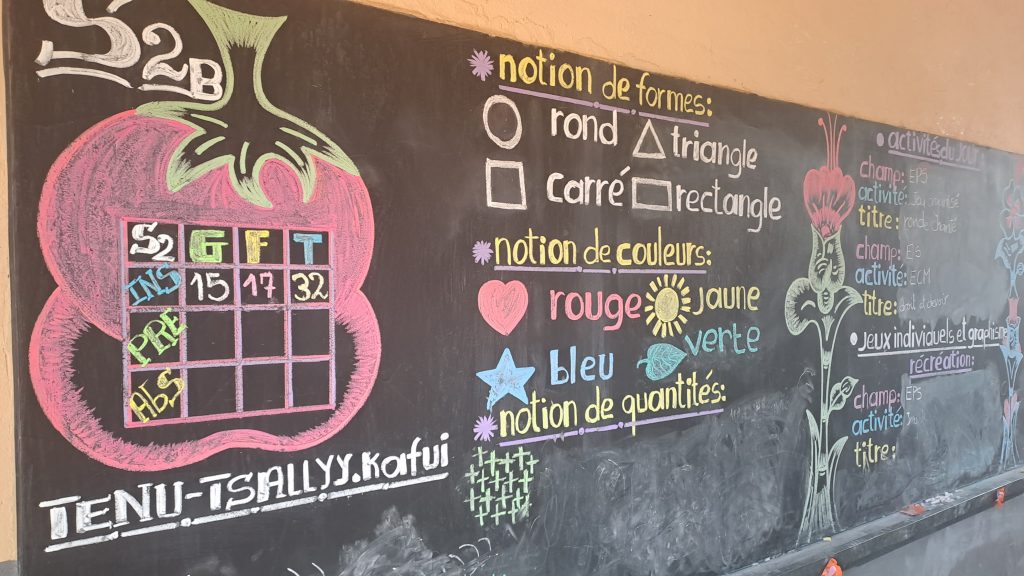 S2B
S2 G F T
INS 15 17 32
PRE
ABS
TENU-TSALLYY.Kafui
notion de formes:
rond triangle
carré rectangle
notion de couleurs:
rouge jaune
bleu verte
notion de quantités:
activité du Jour
champ: EPS
activité:
titre:
champ: ES
activité: ECM
titre:
Jeux individuels et graphisme
récréation:
champ: EPS
activité:
titre: